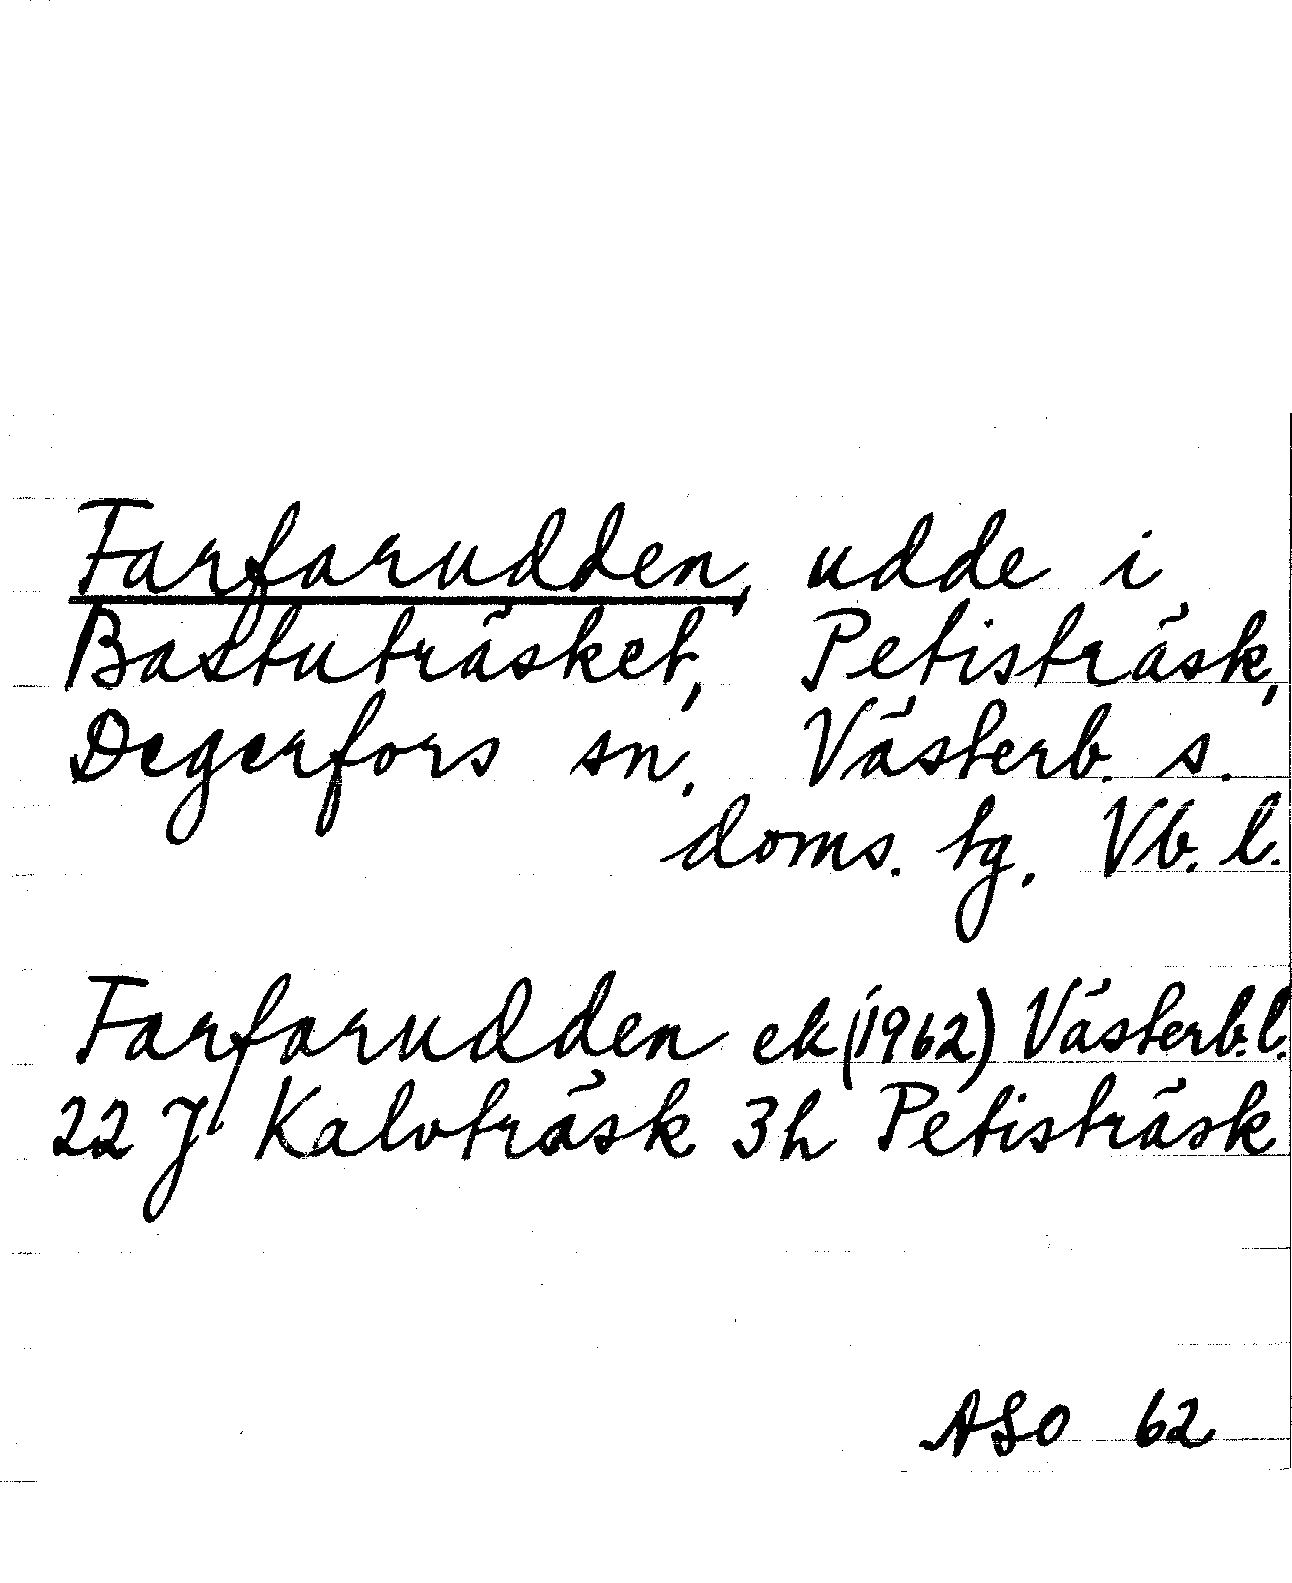 Farfarudden, udde i
Bastuträsket, Petisträsk,
Degerfors sn, Västerb. s.
doms. tg. Vb. l.
Farfarudden ek (1962) Västerb. l.
22 J Kalvträsk 3h Petisträsk
ASO 62